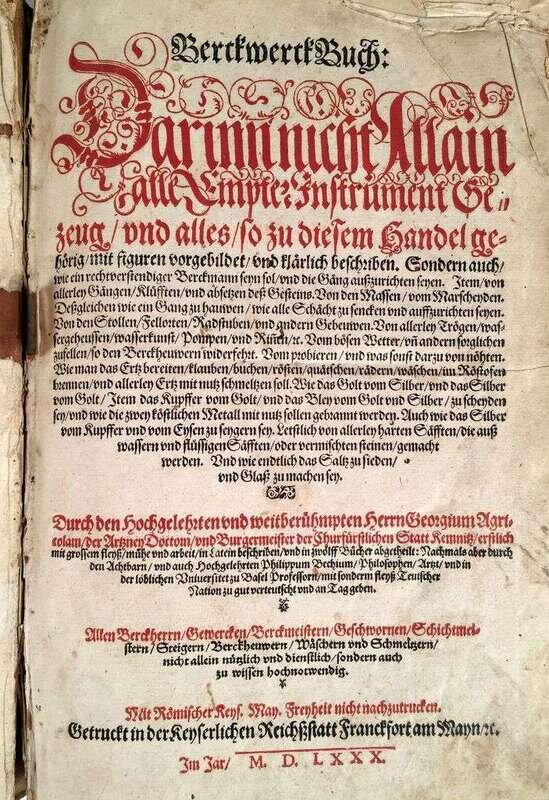 Berckwerck Buch:
Darinn nicht Allain
alle Empter Instrument Ge-
zeug/ vnd alles/ so zu diesem Handel ge-
hörig/ mit figuren vorgebildet/ vnd klärlich beschriben. Sondern auch/
wie ein rechtverstendiger Berckmann seyn sol/ vnd die Gäng außzurichten seyen. Item/ von
allerley Gängen/ Klüfften/ vnd absetzen deß Gesteins. Von den Massen/ vom Marscheyden.
Deßgleichen wie ein Gang zu hauwen/ wie alle Schächt zu sencken vnd auffzurichten seyen.
Von den Stollen/ Fellorten/ Radstuben/ vnd andern Gebeuwen. Von allerley Trögen/ was-
sergeheussen/ wasserkunst/ Pompen/ vnd Rinen/ ꝛc. Vom bösen Wetter/ vñ andern sorglichen
zufellen/ so den Berckheuwern widerfehrt. Vom probieren/ vnd was sonst darzu von nöhten.
Wie man das Ertz bereiten/ klauben/ büchen/ rösten/ quätschen/ rädern/ wäschen/ im Röstofen
brennen/ vnd allerley Ertz mit nutz schmeltzen soll. Wie das Golt vom Silber/ vnd das Silber
vom Golt/ Item das Kupffer vom Golt/ vnd das Bley vom Golt vnd Silber/ zu scheyden
sey/ vnd wie die zwey köstlichen Metall mit nutz sollen gebrannt werden. Auch wie das Silber
vom Kupffer vnd vom Eysen zu seygern sey. Letstlich von allerley harten Säfften/ die auß
wassern vnd flüssigen Säfften/ oder vermischten steinen/ gemacht
werden. Vnd wie endtlich das Saltz zu sieden/
vnd Glaß zu machen sey.
Durch den Hochgelehrten vnd weitberühmpten Herrn Georgium Agri-
colam/ der Artzney Doctorn/ vnd Burgermeister der Churfürstlichen Statt Kemnitz/ erstlich
mit grossem fleyß/ mühe vnd arbeit/ in Latein beschriben/ vnd in zwölff Bücher abgetheilt: Nachmals aber durch
den Achtbarn/ vnd auch Hochgelehrten Philippum Bechium/ Philosophen/ Artzt/ vnd in
der löblichen Vniuersitet zu Basel Professorn/ mit sondern fleyß Teutscher
Nation zu gut verteutscht vnd an Tag geben.
Allen Berckherrn/ Gewercken/ Berckmeistern/ Geschwornen/ Schichtmei-
stern/ Steigern/ Berckheuwern/ Wäschern vnd Schmeltzern/
nicht allein nützlich vnd dienstlich/ sondern auch
zu wissen hochnotwendig.
Mit Römischer Keys. May. Freyheit nicht nachzutrucken.
Getruckt in der Keyserlichen Reichßstatt Franckfort am Mayn/ ꝛc.
Im Jar/ M. D. LXXX.